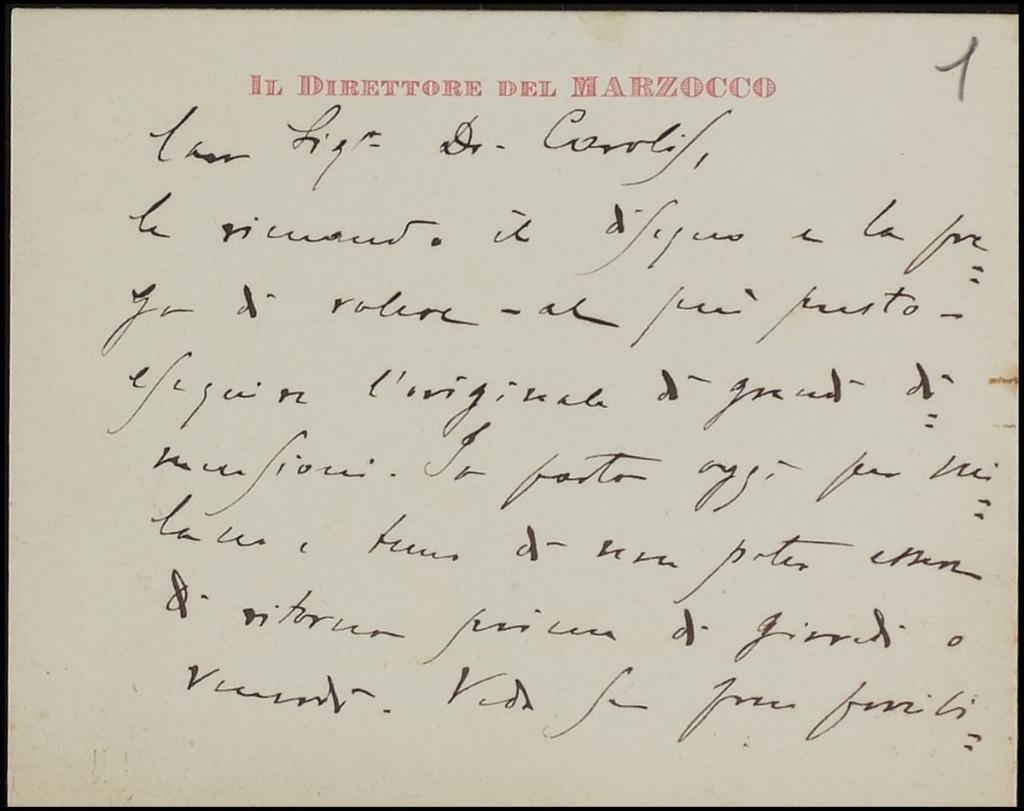 IL DIRETTORE DEL MARZOCCO
1
Caro Sigr De Carolis,
le rimando il disegno e la pre=
go di volere - al più presto -
eseguire l'originale di grandi di=
mensioni. Io parto oggi per Mi=
lano e temo di non poter essere
di ritorno prima di giovedì o
venerdì. Veda se fosse possibi=